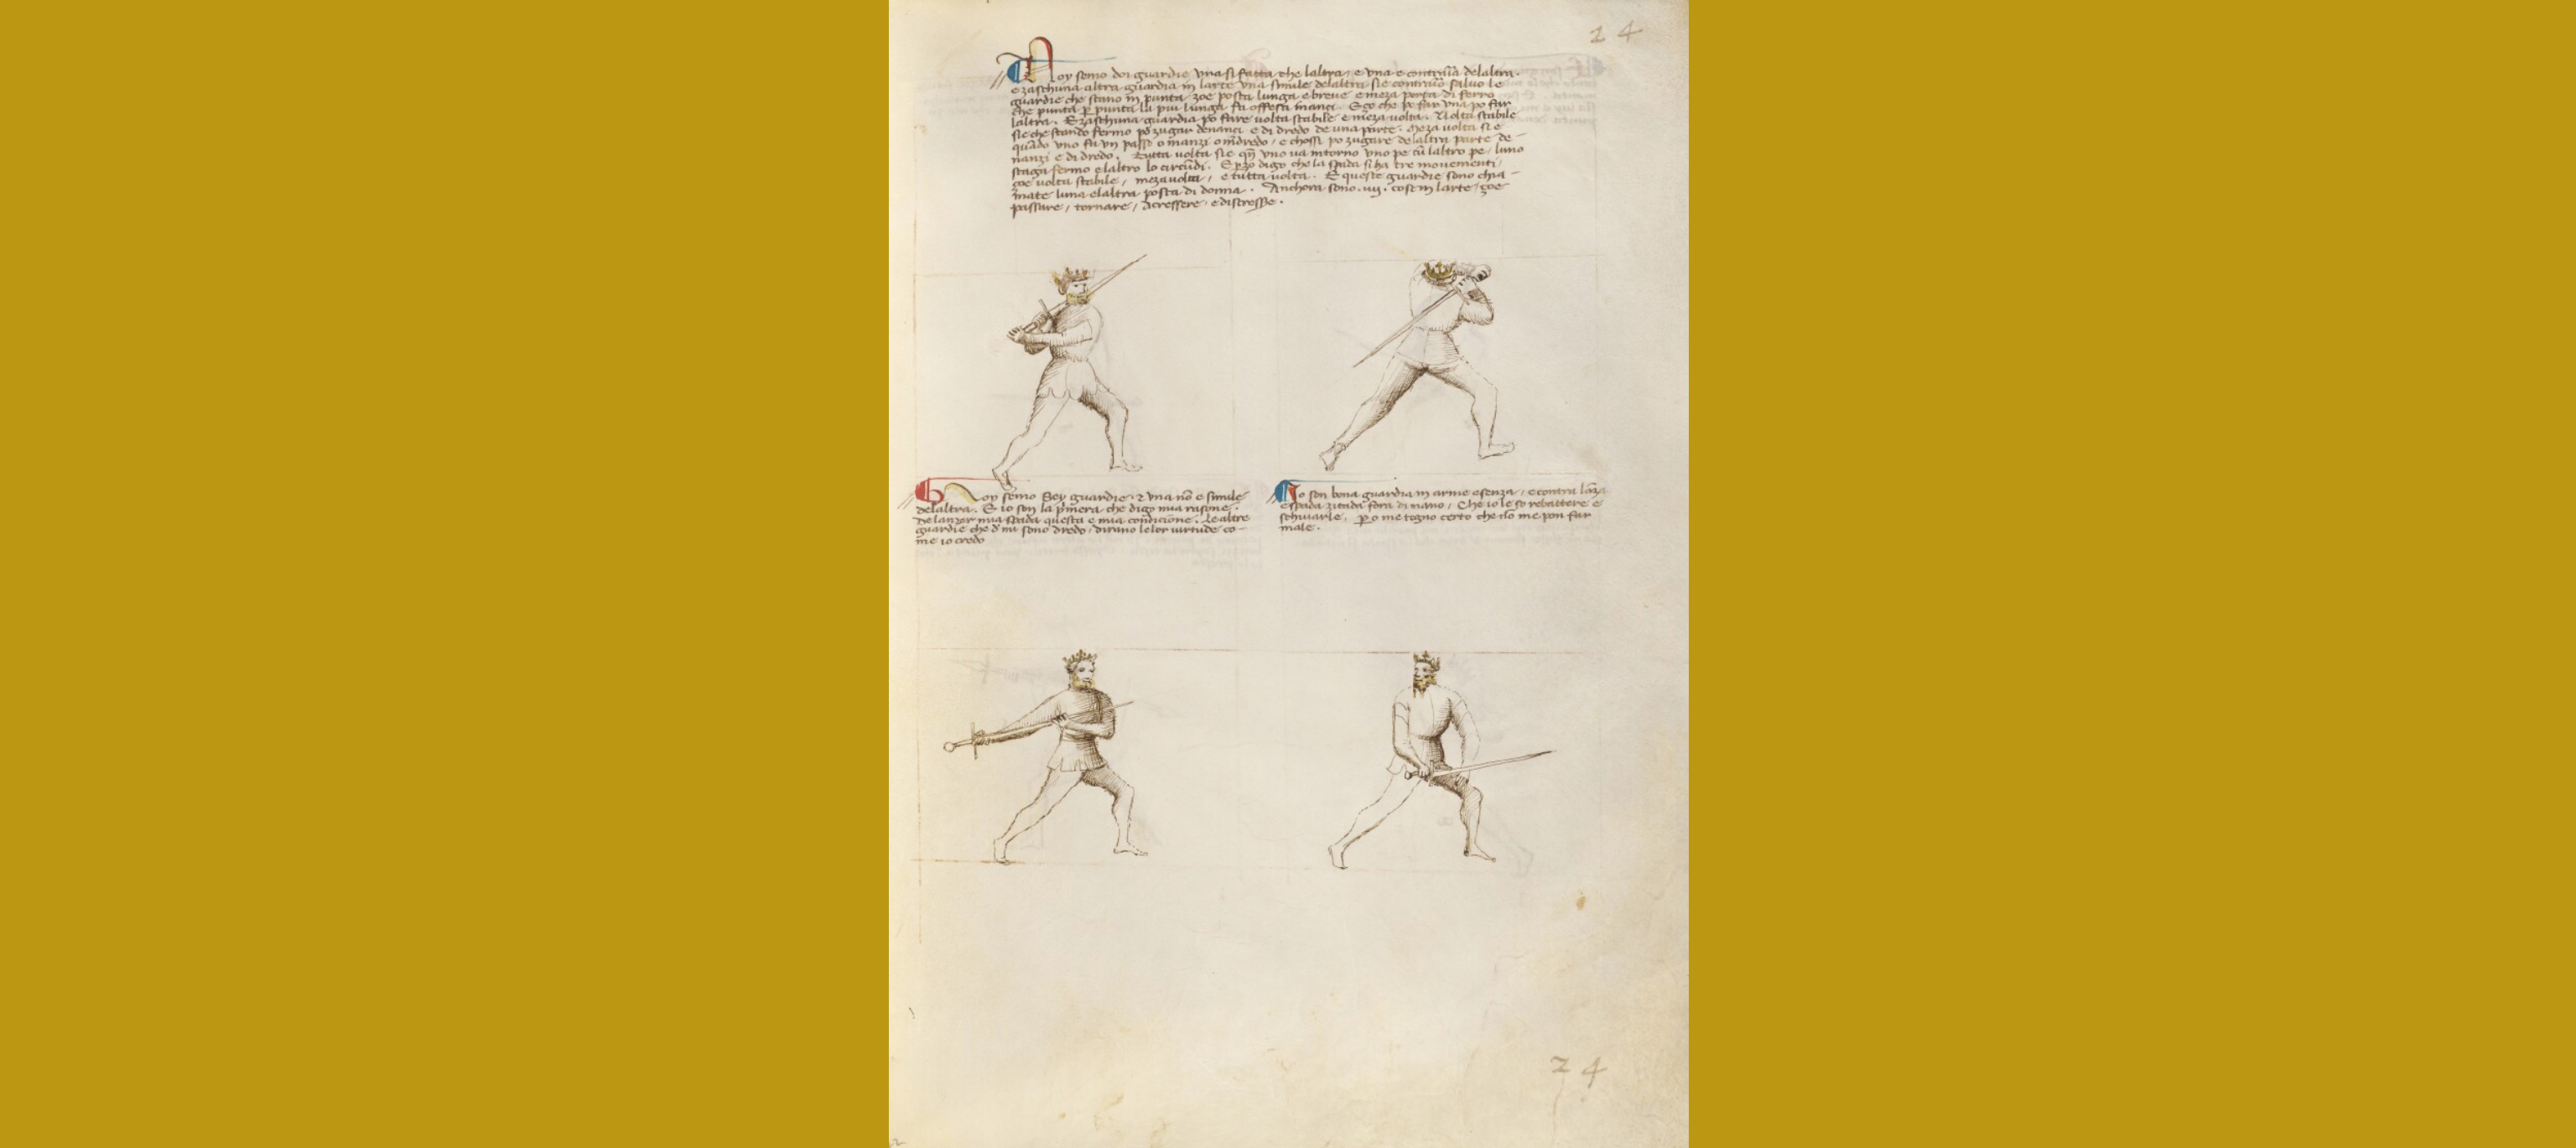 24
Noy semo doi guardie una si fatta che laltra, e una e contraria delaltra.
e zaschuna altra guardia in larte una simile delaltra sie contrario salvo le
guardie che stano in punta zoe posta lunga e breve e meza porta di ferro
che punta per punta la piu lunga fa offesa inanci. E zo che po far una po far
laltra. E zaschuna guardia po fare volta stabile e meza volta. Volta stabile
sie che stando fermo po zugar denanci e di dredo de una parte. Meza volta si e
quando uno fa un passo o inanzi o indredo, e chossi po zugare de laltra parte de
nanzi e di dredo. Tutta volta sie quando uno va intorno uno pe cum laltro pe, luno
staga fermo e laltro lo circundi. E perzo digo che la spada si ha tre movementi,
zoe volta stabile, meza volta, e tutta volta. E queste guardie sono chia-
mate luna e laltra posta di donna. Anchora sono .iiii. cose in larte, zoe
passare, tornare, acressere e discresse.
Noy semo Sey guardie, & una non e simile
delaltra. E io son la primera che digo mia rasone.
De lanzar mia spada questa e mia condicione. Le altre
guardie che de mi sono dredo, dirano le lor virtude co-
me io credo
Io son bona guardia in arme e senza, e contra lanza
e spada zitada fora di mano, Che io le so rebattere e
schivarle, Però me tegno certo che no me pon far
male.
24